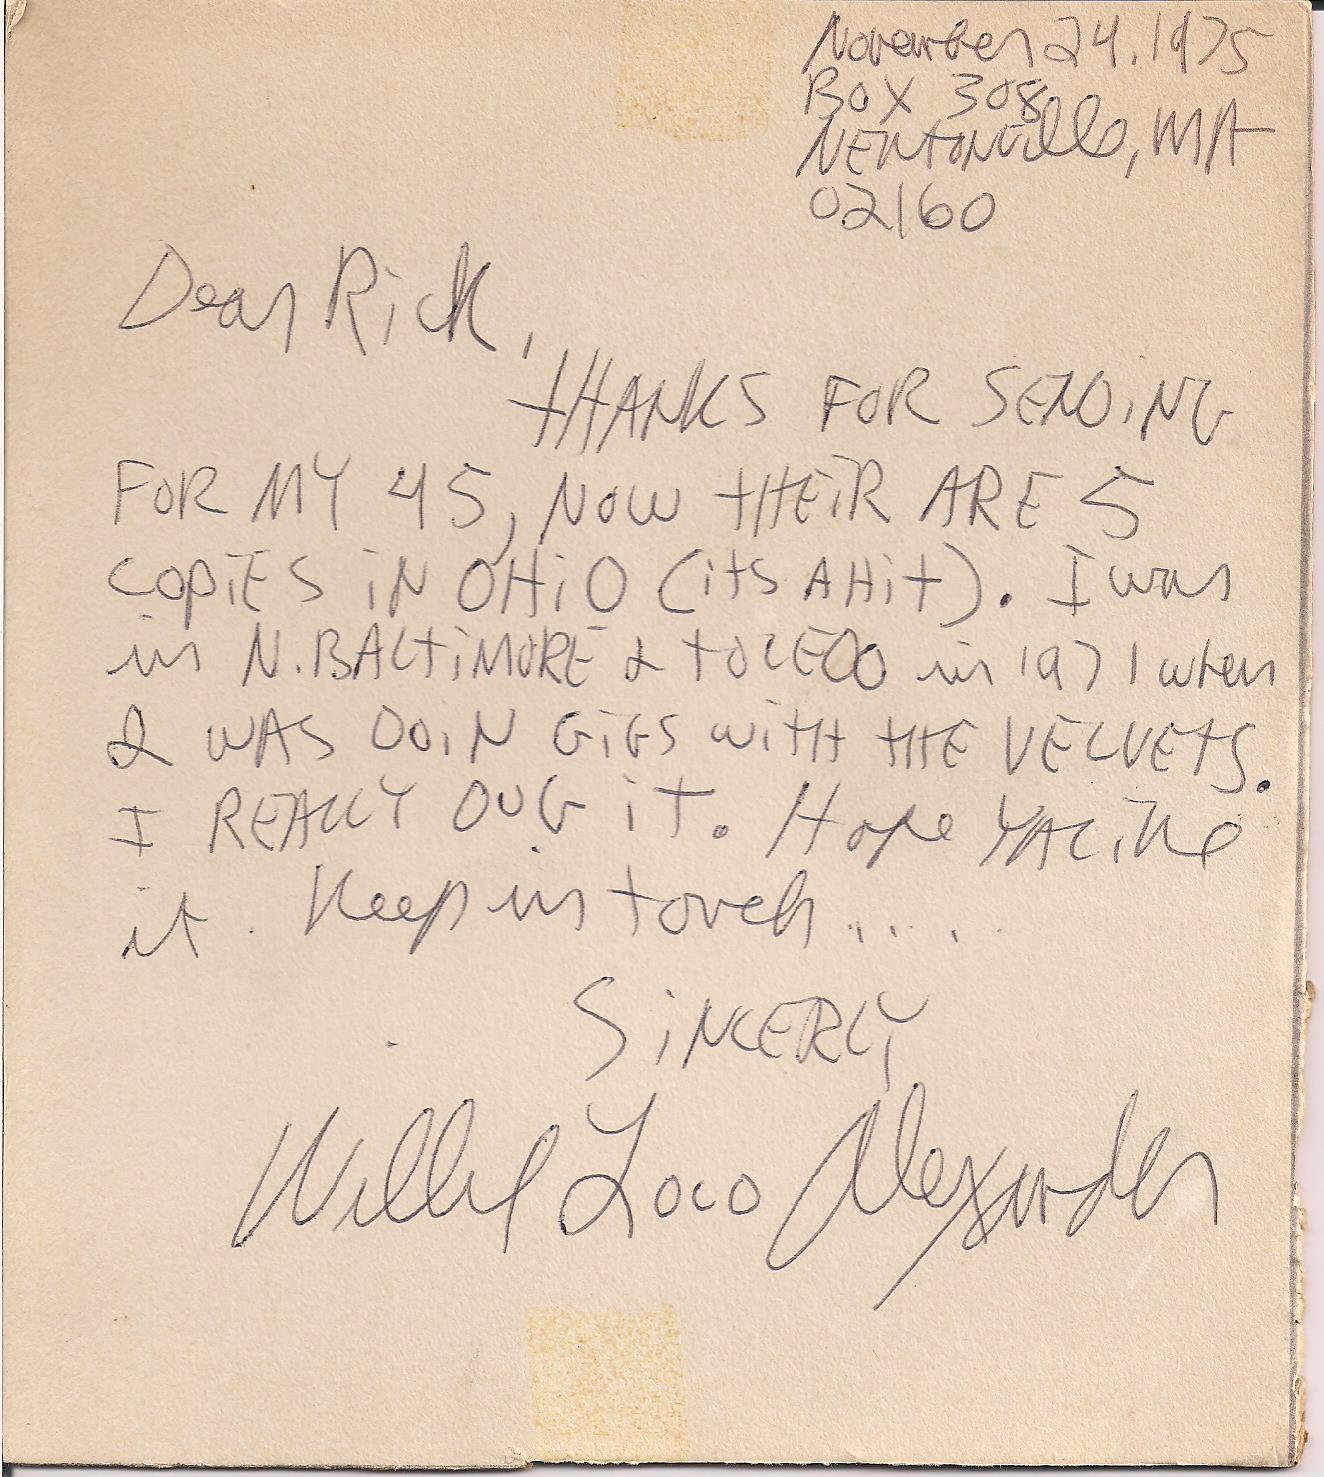 November 24, 1975
BOX 308
NEWTONville, MA
02160
Dear Rick,
THANKS FOR SENDiNG
FOR MY 45, NOW THEiR ARE 5
COPiES iN OHiO (itS A Hit). I was
in N. BALTiMORE & TOLEDO in 1971 when
I WAS DOiN GiGS WiTH THE VELVETS.
I REALLY DUG iT. Hope YA Like
it. Keep in touch.....
SiNCERLY
Willie Loco Alexander